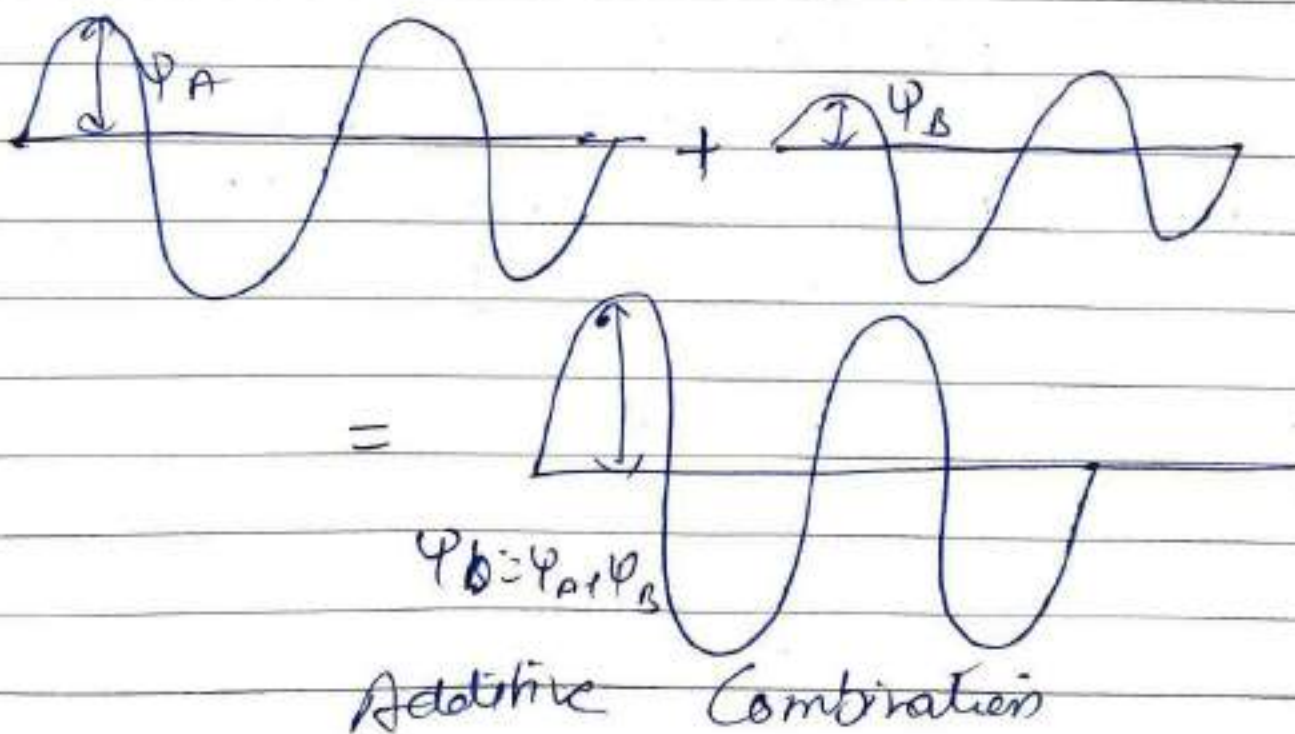 ΨA + ΨB
=
Ψb = ΨA + ΨB
Additive Combination